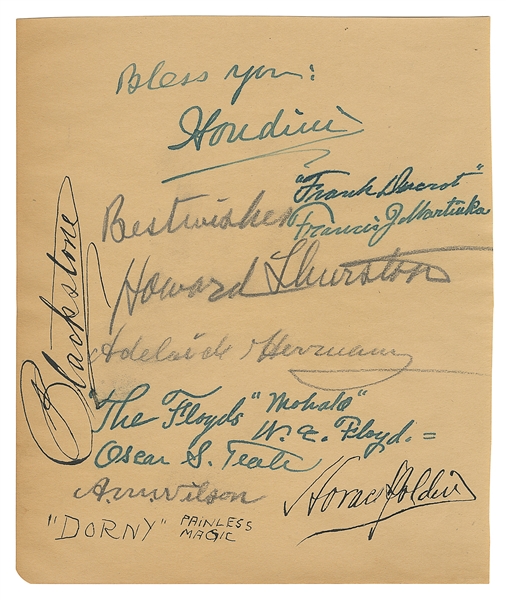 Bless you:
Houdini
"Frank Ducrot"
Francis J. Martinka
Best wishes
Howard Thurston
Blackstone
Adelaide Herrmann
"The Floyds" "Mohala"
W. E. Floyd. =
Oscar S. Teale
A.M. Wilson
Horace Goldin
"DORNY" PAINLESS
MAGIC